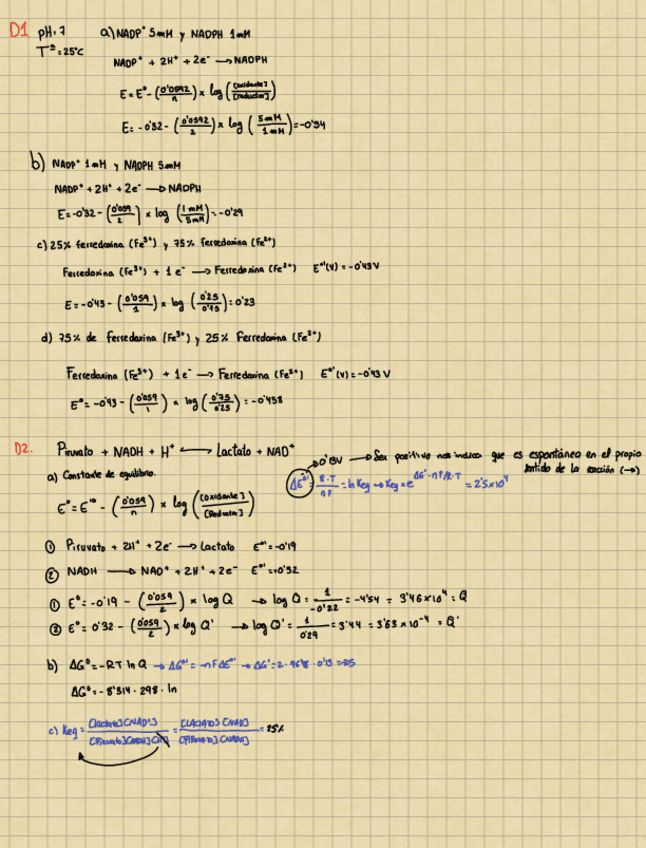 D1 pH=7 a) NADP⁺ 5mM y NADPH 1mM
Tª=25ºC
NADP⁺ + 2H⁺ + 2e⁻ → NADPH
E=E°-(0'0592/n) x log([oxidante]/[reductor])
E=-0'32-(0'0592/2) x log(5mM/1mM)=-0'34
b) NADP⁺ 1mM y NADPH 5mM
NADP⁺ + 2H⁺ + 2e⁻ → NADPH
E=-0'32-(0'059/2) x log(1mM/5mM)=-0'29
c) 25% ferredoxina (Fe³⁺) y 75% ferredoxina (Fe²⁺)
Ferredoxina (Fe³⁺) + 1e⁻ → Ferredoxina (Fe²⁺) E°'(V) = -0'43V
E=-0'43-(0'059/1) x log(0'25/0'75)=0'23
d) 75% de ferredoxina (Fe³⁺) y 25% Ferredoxina (Fe²⁺)
Ferredoxina (Fe³⁺) + 1e⁻ → Ferredoxina (Fe²⁺) E°'(V) = -0'43V
E°=-0'43-(0'059/1) x log(0'75/0'25)=-0'458
D2. Piruvato + NADH + H⁺ ⟷ Lactato + NAD⁺
→ Ser positivo nos indica que es espontáneo en el propio
sentido de la reacción (→)
a) Constante de equilibrio.
ΔE°' = R·T/nF = ln Keq → Keq = e^ΔE°·nF/R·T = 2'5x10⁴
E°=E'°-(0'059/n) x log([Oxidante]/[Reductor])
① Piruvato + 2H⁺ + 2e⁻ → Lactato E°'=-0'19
② NADH → NAD⁺ + 2H⁺ + 2e⁻ E°'=+0'32
① E°=-0'19-(0'059/2) x log Q → log Q = 1/-0'22 = -4'54 = 3'46x10⁴ = Q
② E°=0'32-(0'059/2) x log Q' → log Q' = 1/0'29 = 3'44 = 3'63x10⁻⁴ = Q'
b) ΔG°=-RT ln Q → ΔG°'=-nFΔE°' → ΔG°=2·96'8·0'13=25
ΔG°=-8'314·298·ln
c) Keq = [lactato][NAD⁺]/[Piruvato][NADH][H⁺] = [LACTATO][NAD]/[PIRUVATO][NADH] = 25%